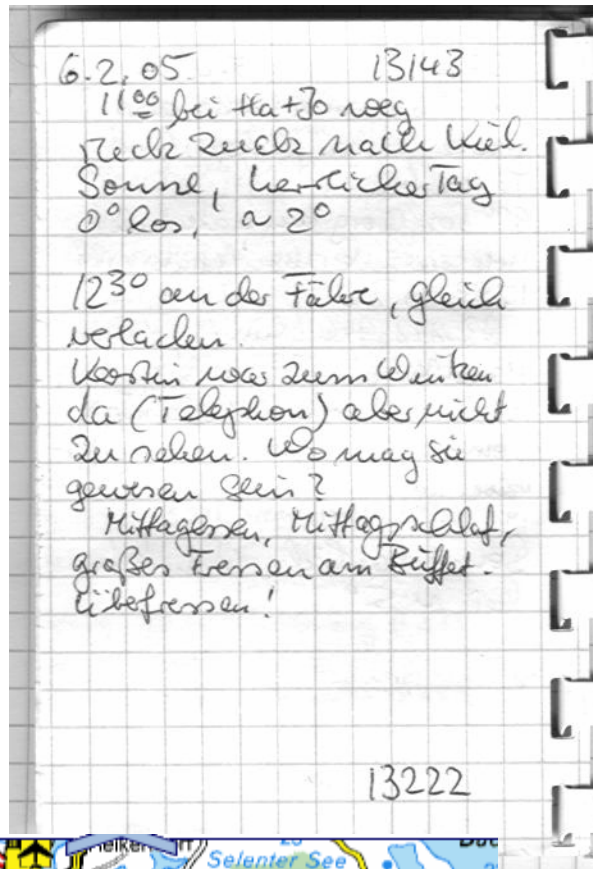 6.2.05 13143
11⁰⁰ bei Ha+Jo weg
ruck zuck nach Kiel.
Sonne, herrlicher Tag
0° los, ~ 2°
12³⁰ an der Fähre, gleich
verladen.
Kerstin war zum Winken
da (Telephon) aber nicht
zu sehen. Wo mag sie
gewesen sein?
Mittagessen, Mittagschlaf,
großes Fressen am Büffet.
Überfressen!
13222
Selenter See